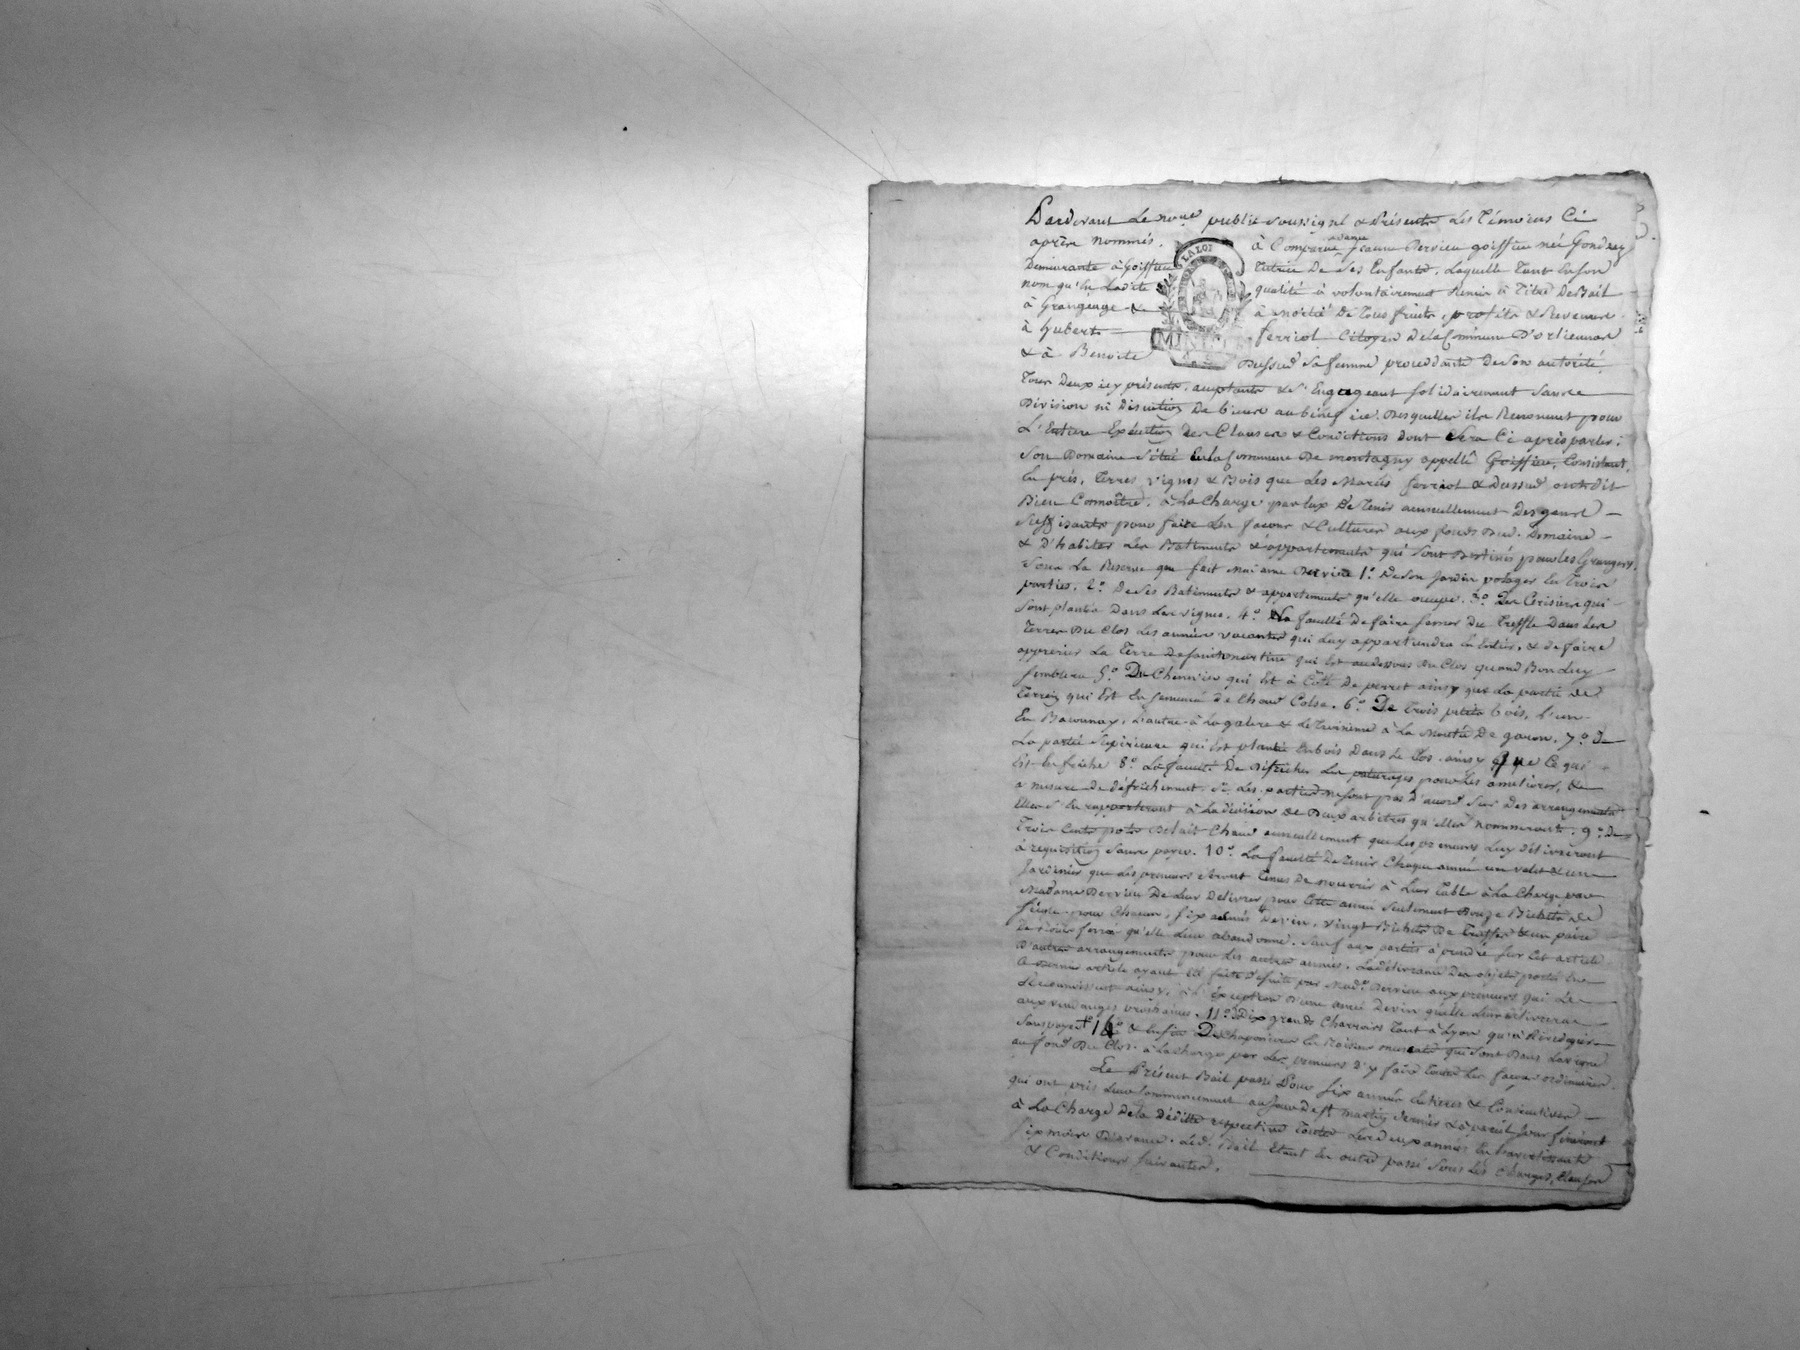 Pardevant Le no.re public soussigné & Présents Les Témoins Ci
après nommés, à Comparue Jeanne Dervieu goiffieu née Gondrey
Demeurante à Goiffieu Tutrice De Ses Enfants, Laquelle Tant En son
nom qu'En Ladite qualité à volontairement Remis à Titre De Bail
à Grangéage & à moitié De Tous fruits, profits & Revenus
à hubert ferriol Citoyen De la Commune D'orlienas
& à Benoite Dussud Sa femme procedante De Son autorité,
Tous Deux icy présents, acceptants & S'Engageant Solidairement Sans
Division ni Discution De biens au bénéfice Desquelles ils Renoncent pour
L'Entiere Exécution Des Clauses & Conditions dont Sera Ci après parlé;
Son Domaine Situé En la Commune De montagny appellé Goiffieu, Consistant
En prés, Terres, vignes & Bois que Les Mariés ferriol & Dussud ont dit
Bien Connoître. à La Charge par Eux De Tenir annuellement Des gens
Suffisants pour faire Les façons & Cultures aux fonds Dud. Domaine
& D'habiter Les Batiments & appartements qui Sont Destinés pour Les Grangers.
Sous La Reserve que fait Madame Dervieu 1.° De Son Jardin potager En Trois
parties. 2.° De Ses Batiments & appartements qu'elle occupe. 3.° Des Cerisiers qui
Sont plantés Dans Les vignes. 4.° La faculté De faire Semer Du Treffle Dans Les
Terres Du Clos Les années vacantes qui Luy appartiendra En Entier, & De faire
apprerier La Terre De qui Est au dessous Du Clos quand Bon Luy
Semblera 5.° Du Chennevier qui Est à Côté De perret ainsy que La partie De
Terrein qui Est En Semence De Choux Colsa. 6.° De Trois petits bois, L'un
En Bavounay, L'autre à La galere & Le Troisieme à La Montée De garon. 7.° De
La partie Supérieure qui Est plantée En bois Dans Le Clos, ainsy que Ce qui
Est En friche 8.° La faculté De Défricher Les paturages pour Les ameliorer, &
a mesure De défrichement, Si Les parties ne Sont pas D'accord Sur Les arrangements
Elles S'En rapporteront à La décision De Deux arbitres qu'elles nommeront. 9.° De
Trois Cents pots De Lait Chaud annuellement que Les preneurs Luy délivreront
à requisition Sans payer. 10.° La faculté De Tenir Chaque année un valet & un
Jardinier que Les preneurs Seront Tenus De nourrir à Leur Table à La Charge par
Madame Dervieu De Leur Delivrer pour Cette année Seulement Douze Bichets De
Seigle pour Chacun, Six De vin, vingt Bichets De Truffes & un paire
De Cochons qu'elle Leur abandonne. Sauf aux parties à prendre Sur Cet article
D'autres arrangements pour Les autres années. La délivrance Des objets portés En
Ce Dernier article ayant Eté faite De Suite par Mad.e Dervieu aux preneurs qui Le
Reconnoissent ainsy, à L'Exception D'une anée De vin qu'elle Leur delivrera
aux vendanges prochaines. 11.° Dix grands Charrois Tant à Lyon qu'à Rivedegier
Sans payer & Enfin De En Raisins muscats qui Sont Dans La vigne
au fond Du Clos. à La charge par Les preneurs D'y faire Toutes Les façons ordinaires.
Le Présent Bail passé Pour Six années Entieres & Consécutives
qui ont pris Leur Commencement au Jour De St. martin Dernier & à pareil Jour finiront
à La Charge De la Dédite respective Toutes Les deux années En S'avertissant
Six mois D'avance. Led. Bail Etant En outre passé Sous Les Charges, Clauses
& Conditions Suivantes.
LA LOI